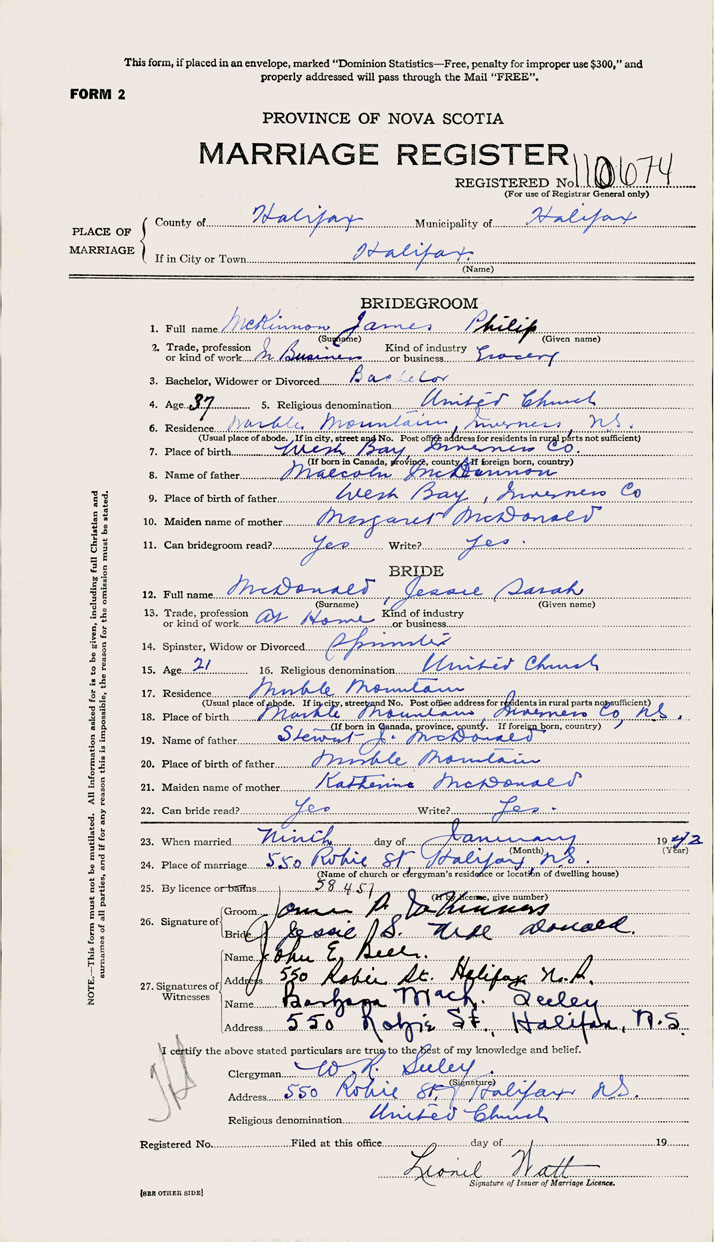 This form, if placed in an envelope, marked "Dominion Statistics—Free, penalty for improper use $300," and
properly addressed will pass through the Mail "FREE".
FORM 2
PROVINCE OF NOVA SCOTIA
MARRIAGE REGISTER
REGISTERED No. 110674
(For use of Registrar General only)
PLACE OF MARRIAGE
County of Halifax Municipality of Halifax
If in City or Town Halifax.
(Name)
BRIDEGROOM
1. Full name McKinnon James Philip
(Surname) (Given name)
2. Trade, profession or kind of work In Business Kind of industry or business Grocery
3. Bachelor, Widower or Divorced Bachelor
4. Age 37 5. Religious denomination United Church
6. Residence Marble Mountain, Inverness, N.S.
(Usual place of abode. If in city, street and No. Post office address for residents in rural parts not sufficient)
7. Place of birth West Bay, Inverness Co.
(If born in Canada, province, county. If foreign born, country)
8. Name of father Malcolm McKinnon
9. Place of birth of father West Bay, Inverness Co
10. Maiden name of mother Margaret McDonald
11. Can bridegroom read? Yes Write? Yes.
BRIDE
12. Full name McDonald, Jessie Sarah
(Surname) (Given name)
13. Trade, profession or kind of work At Home Kind of industry or business
14. Spinster, Widow or Divorced Spinster
15. Age 21 16. Religious denomination United Church
17. Residence Marble Mountain
(Usual place of abode. If in city, street and No. Post office address for residents in rural parts not sufficient)
18. Place of birth Marble Mountain, Inverness Co, N.S.
(If born in Canada, province, county. If foreign born, country)
19. Name of father Stewart J. McDonald
20. Place of birth of father Marble Mountain
21. Maiden name of mother Katherine McDonald
22. Can bride read? Yes Write? Yes.
23. When married Ninth day of January 1942
(Month) (Year)
24. Place of marriage 550 Robie St, Halifax, N.S.
(Name of church or clergyman's residence or location of dwelling house)
25. By licence or banns 58451
(If by license, give number)
26. Signature of
Groom James P. McKinnon
Bride Jessie S. McDonald.
27. Signatures of Witnesses
Name John E. Beer.
Address 550 Robie St. Halifax N.S.
Name Barbara MacK. Seeley
Address 550 Robie St., Halifax, N.S.
I certify the above stated particulars are true to the best of my knowledge and belief.
Clergyman W. R. Seeley.
(Signature)
Address 550 Robie St, Halifax N.S.
Religious denomination United Church
Registered No. Filed at this office day of 19
Lionel Watt
Signature of Issuer of Marriage Licence.
[SEE OTHER SIDE]
NOTE.—This form must not be mutilated. All information asked for is to be given, including full Christian and
surnames of all parties, and if for any reason this is impossible, the reason for the omission must be stated.